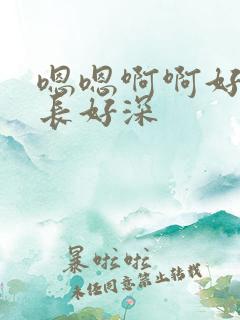 嗯嗯啊啊好
长好深
暴啦啦
未经同意禁止转载